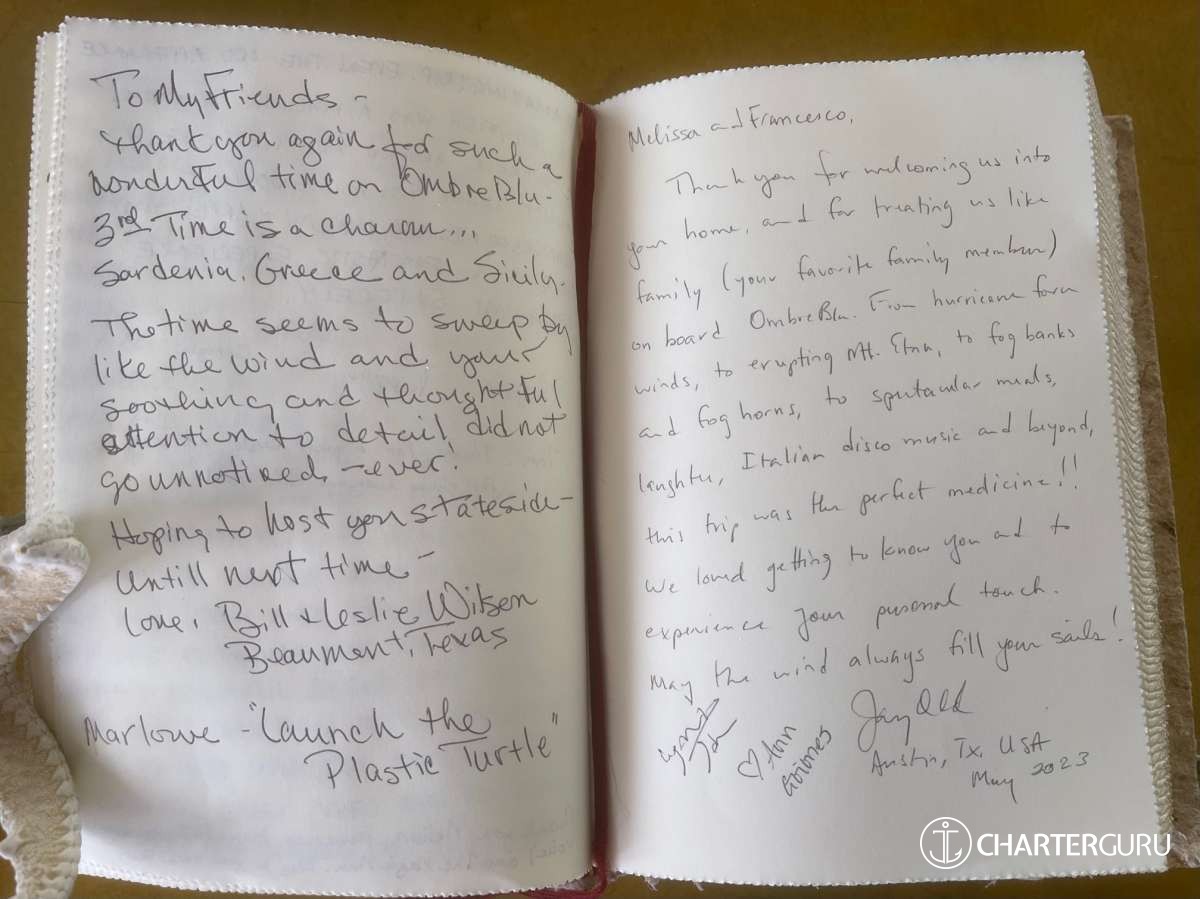 To My Friends -
thank you again for such a
wonderful time on OmbreBlu.
3rd Time is a charam...
Sardenia, Greece and Sicily.
The time seems to sweep by
like the wind and your
soothing and thoughtful
attention to detail, did not
go unnoticed - ever!
Hoping to host you stateside -
Untill next time -
Love, Bill & Leslie Wilson
Beaumont, Texas
Marlowe - "Launch the
Plastic Turtle"
Melissa and Francesco,
Thank you for welcoming us into
your home, and for treating us like
family (your favorite family members)
on board OmbreBlu. From hurricane force
winds, to erupting Mt. Etna, to fog banks
and fog horns, to spectacular meals,
laughter, Italian disco music and beyond,
this trip was the perfect medicine!!
We loved getting to know you and to
experience your personal touch.
May the wind always fill your sails!
♡ Ann
Grimes
Austin, Tx. USA
May 2023
CHARTERGURU